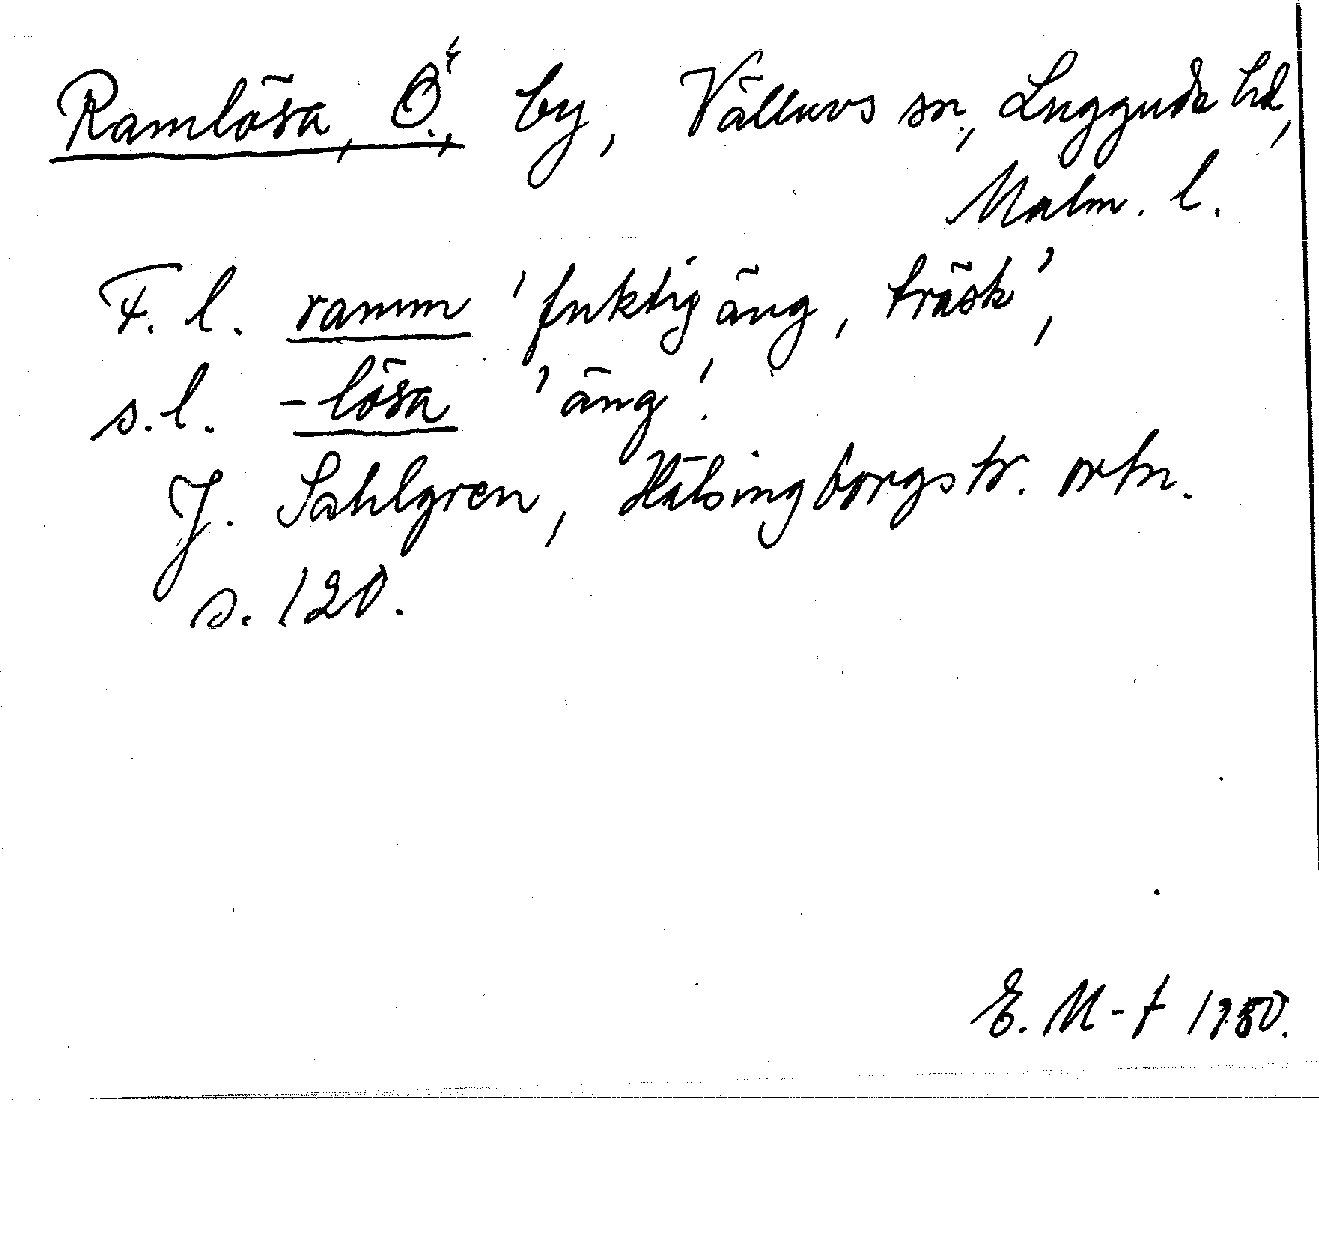 Ramlösa, Ö., by, Välluvs sn, Luggude hd,
Malm. l.
F. l. ramm 'fuktig äng, träsk',
s. l. -lösa 'äng'.
J. Sahlgren, Hälsingborgstr. ortn.
s. 120.
E. M-t 1950.